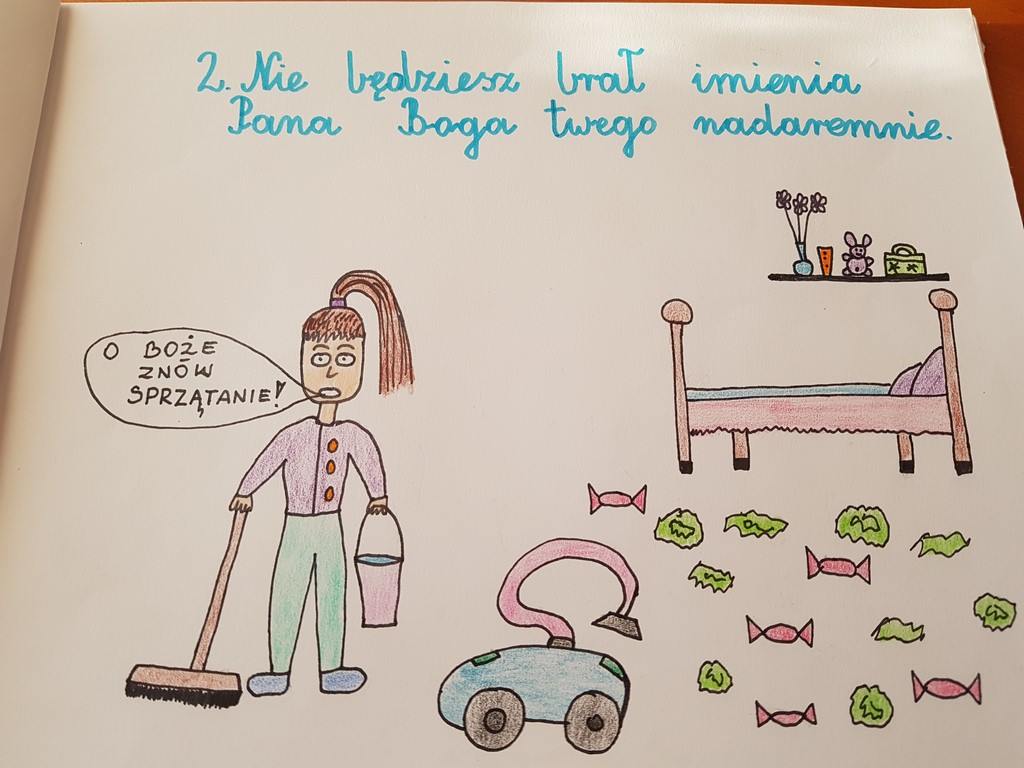 2. Nie będziesz brał imienia
Pana Boga twego nadaremnie.
O BOŻE
ZNÓW
SPRZĄTANIE!